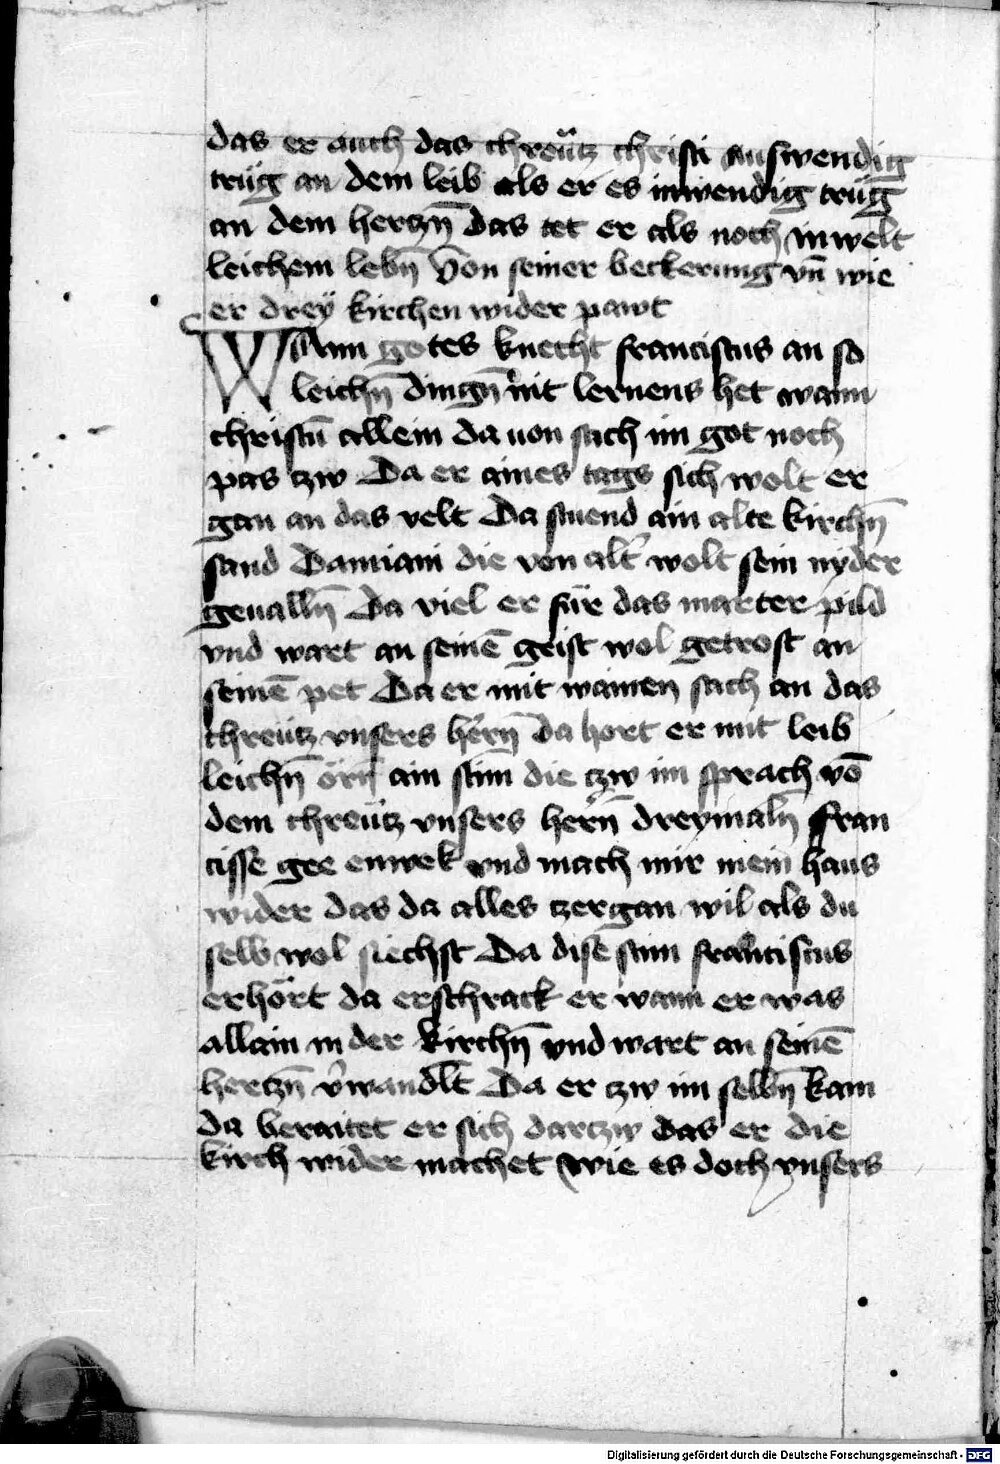 das er auch das chreücz christi auswendig
trüg an dem leib als er es inwendig trüg
an dem herczn̄ das tet er als noch in welt
leichem lebn̄ Von seiner bekerung vn̄ wie
er dreÿ kirchen wider pawt
Wann gotes knecht franciscus an so
leichn̄ dingn̄ nit lernens het wann
christū allein da uon sach im got noch
pas czw Da er aines tags sich wolt er
gan an das velt Da stuend ain alte kirchn̄
sand Damiani die von alt' wolt sein nyder
geualln̄ Da viel er für das marter pild
vnd wart an seinē geist wol getrost an
seinē pet Da er mit wainen sach an das
chreücz vnsers hern̄ da hort er mit leib
leichn̄ örn̄ ain stim̄ die czw im sprach vō
dem chreücz vnsers hern̄ dreymaln̄ fran
cisse gee enwek vnd mach mir mein haus
wider das da alles czergan wil als du
selb wol siechst Da dise stim franciscus
erhört da erschrack er wann er was
allain in der kirchn̄ vnd wart an seinē
herczn̄ v'wandlt Da er czw im selbn̄ kam
da beraitet er sich darczw das er die
kirch wider machet wie es doch vnsers
Digitalisierung gefördert durch die Deutsche Forschungsgemeinschaft - DFG